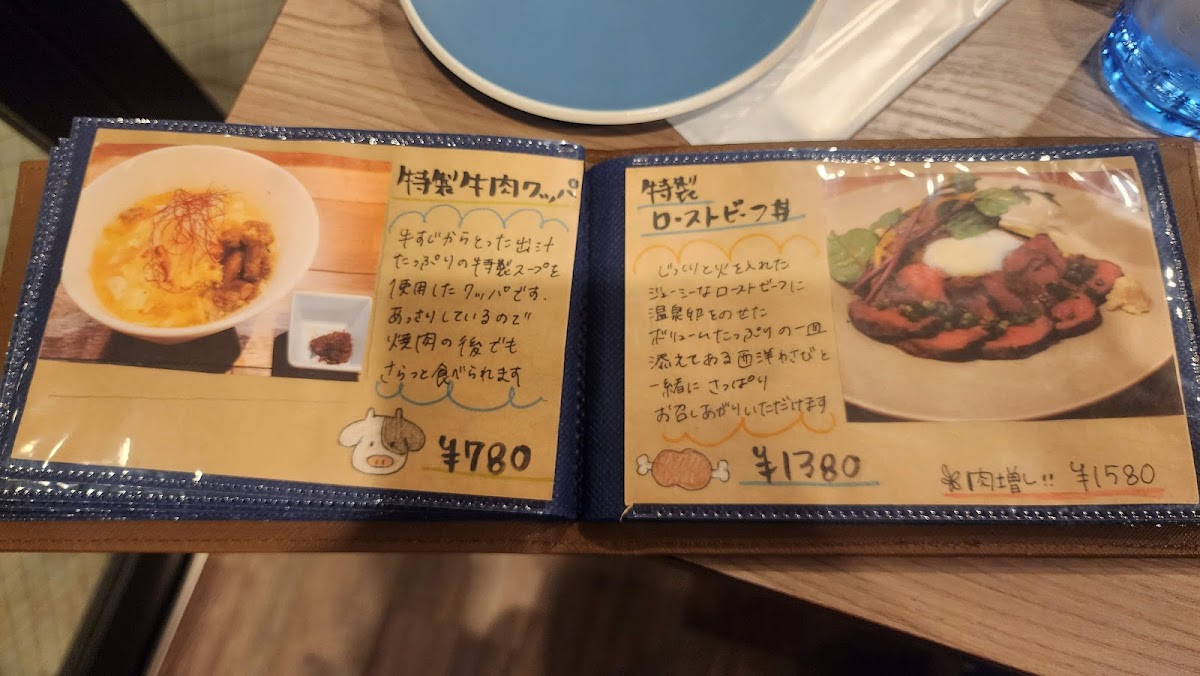 特製牛肉クッパ
牛すじからとった出汁
たっぷりの特製スープを
使用したクッパです.
あっさりしているので
焼肉の後でも
さらっと食べられます
¥780
特製
ローストビーフ丼
じっくりと火を入れた
ジューシーなローストビーフに
温泉卵をのせた
ボリュームたっぷりの一皿
添えてある西洋わさびと
一緒にさっぱり
お召しあがりいただけます
¥1380
※肉増し!! ¥1580